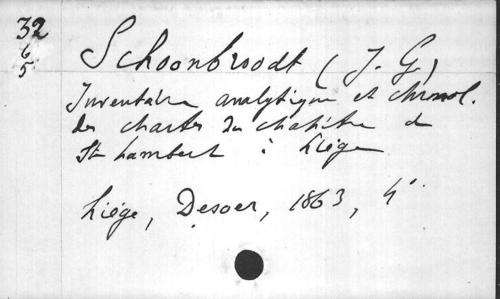 32
6
5
Schoonbroodt (J. G.)
Inventaire analytique et chronol.
des chartes du chapitre de
St Lambert à Liége
Liége, Desoer, 1863, 4°.